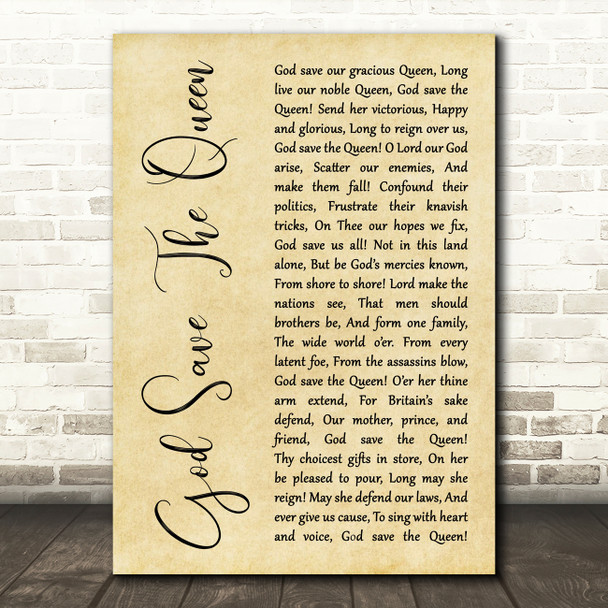 God Save The Queen
God save our gracious Queen, Long
live our noble Queen, God save the
Queen! Send her victorious, Happy
and glorious, Long to reign over us,
God save the Queen! O Lord our God
arise, Scatter our enemies, And
make them fall! Confound their
politics, Frustrate their knavish
tricks, On Thee our hopes we fix,
God save us all! Not in this land
alone, But be God's mercies known,
From shore to shore! Lord make the
nations see, That men should
brothers be, And form one family,
The wide world o'er. From every
latent foe, From the assassins blow,
God save the Queen! O'er her thine
arm extend, For Britain's sake
defend, Our mother, prince, and
friend, God save the Queen!
Thy choicest gifts in store, On her
be pleased to pour, Long may she
reign! May she defend our laws, And
ever give us cause, To sing with heart
and voice, God save the Queen!